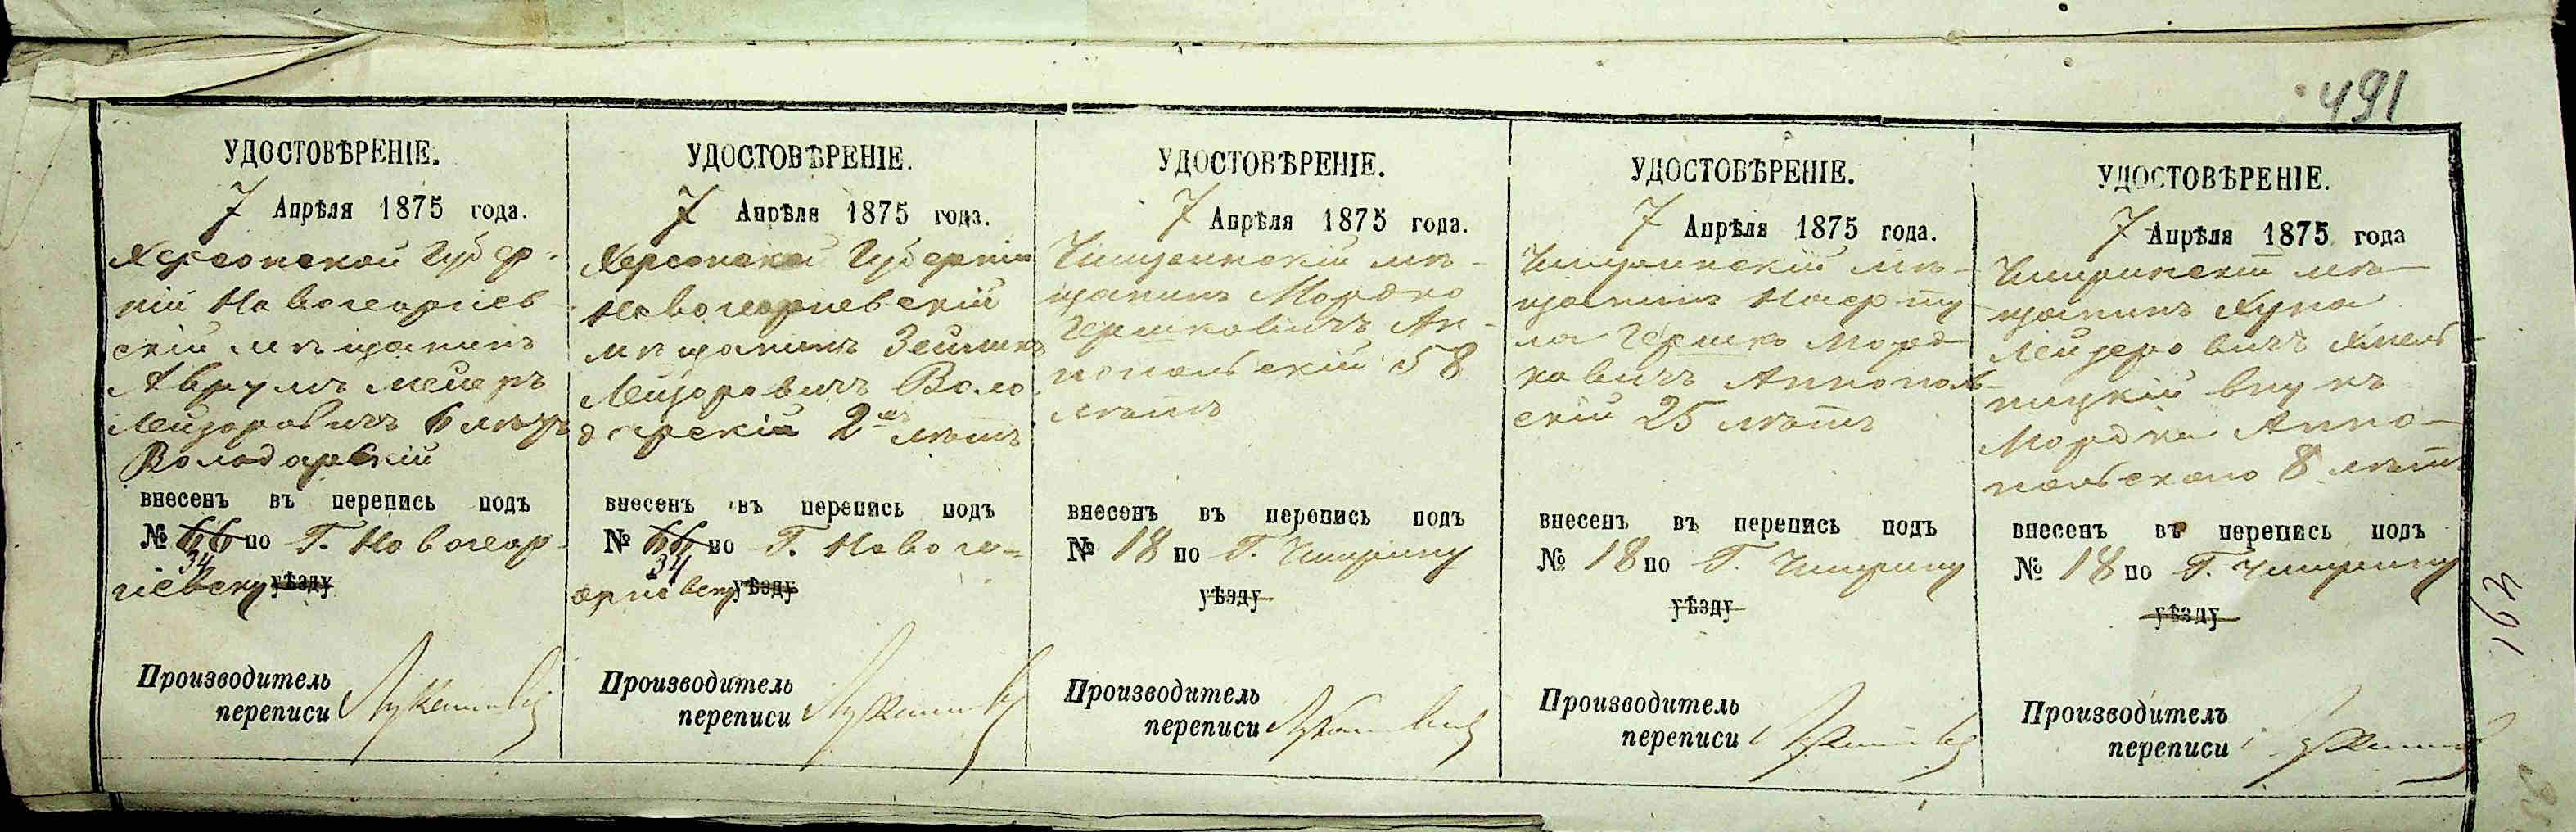 491
УДОСТОВѢРЕНІЕ.
7 Апрѣля 1875 года.
Херсонской Губер-
ніи Новогеоргіев
скій мѣщанинъ
Аврумъ Мееръ
Лейзоровичъ
Володарскій
внесенъ въ перепись подъ
№ 66 по Г. Новогеор-
34
гіевску уѣзду
Производитель
переписи
УДОСТОВѢРЕНІЕ.
7 Апрѣля 1875 года.
Херсонской Губерніи
Новогеоргіевскій
мѣщанинъ Зейликъ
Лейзоровичъ Воло
дарскій 2хъ лѣтъ
внесенъ въ перепись подъ
№ 66 по Г. Новоге-
34
оргіевску уѣзду
Производитель
переписи
УДОСТОВѢРЕНІЕ.
7 Апрѣля 1875 года.
Чигринскій мѣ-
щанинъ Мордко
Гершковичъ Ан-
нопольскій 58
лѣтъ
внесенъ въ перепись подъ
№ 18 по Г. Чигрину
уѣзду
Производитель
переписи
УДОСТОВѢРЕНІЕ.
7 Апрѣля 1875 года.
Чигринскій мѣ-
щанинъ Нафту
ла Гершко Морд
ковичъ Аннополь-
скій 25 лѣтъ
внесенъ въ перепись подъ
№ 18 по Г. Чигрину
уѣзду
Производитель
переписи
УДОСТОВѢРЕНІЕ.
7 Апрѣля 1875 года
Чигринскій мѣ-
щанинъ Хуна
Лейзеровичъ Хмель-
ницкій внукъ
Мордка Анно-
польскаго 8 лѣтъ
внесенъ въ перепись подъ
№ 18 по Г. Чигрину
уѣзду
Производитель
переписи
163